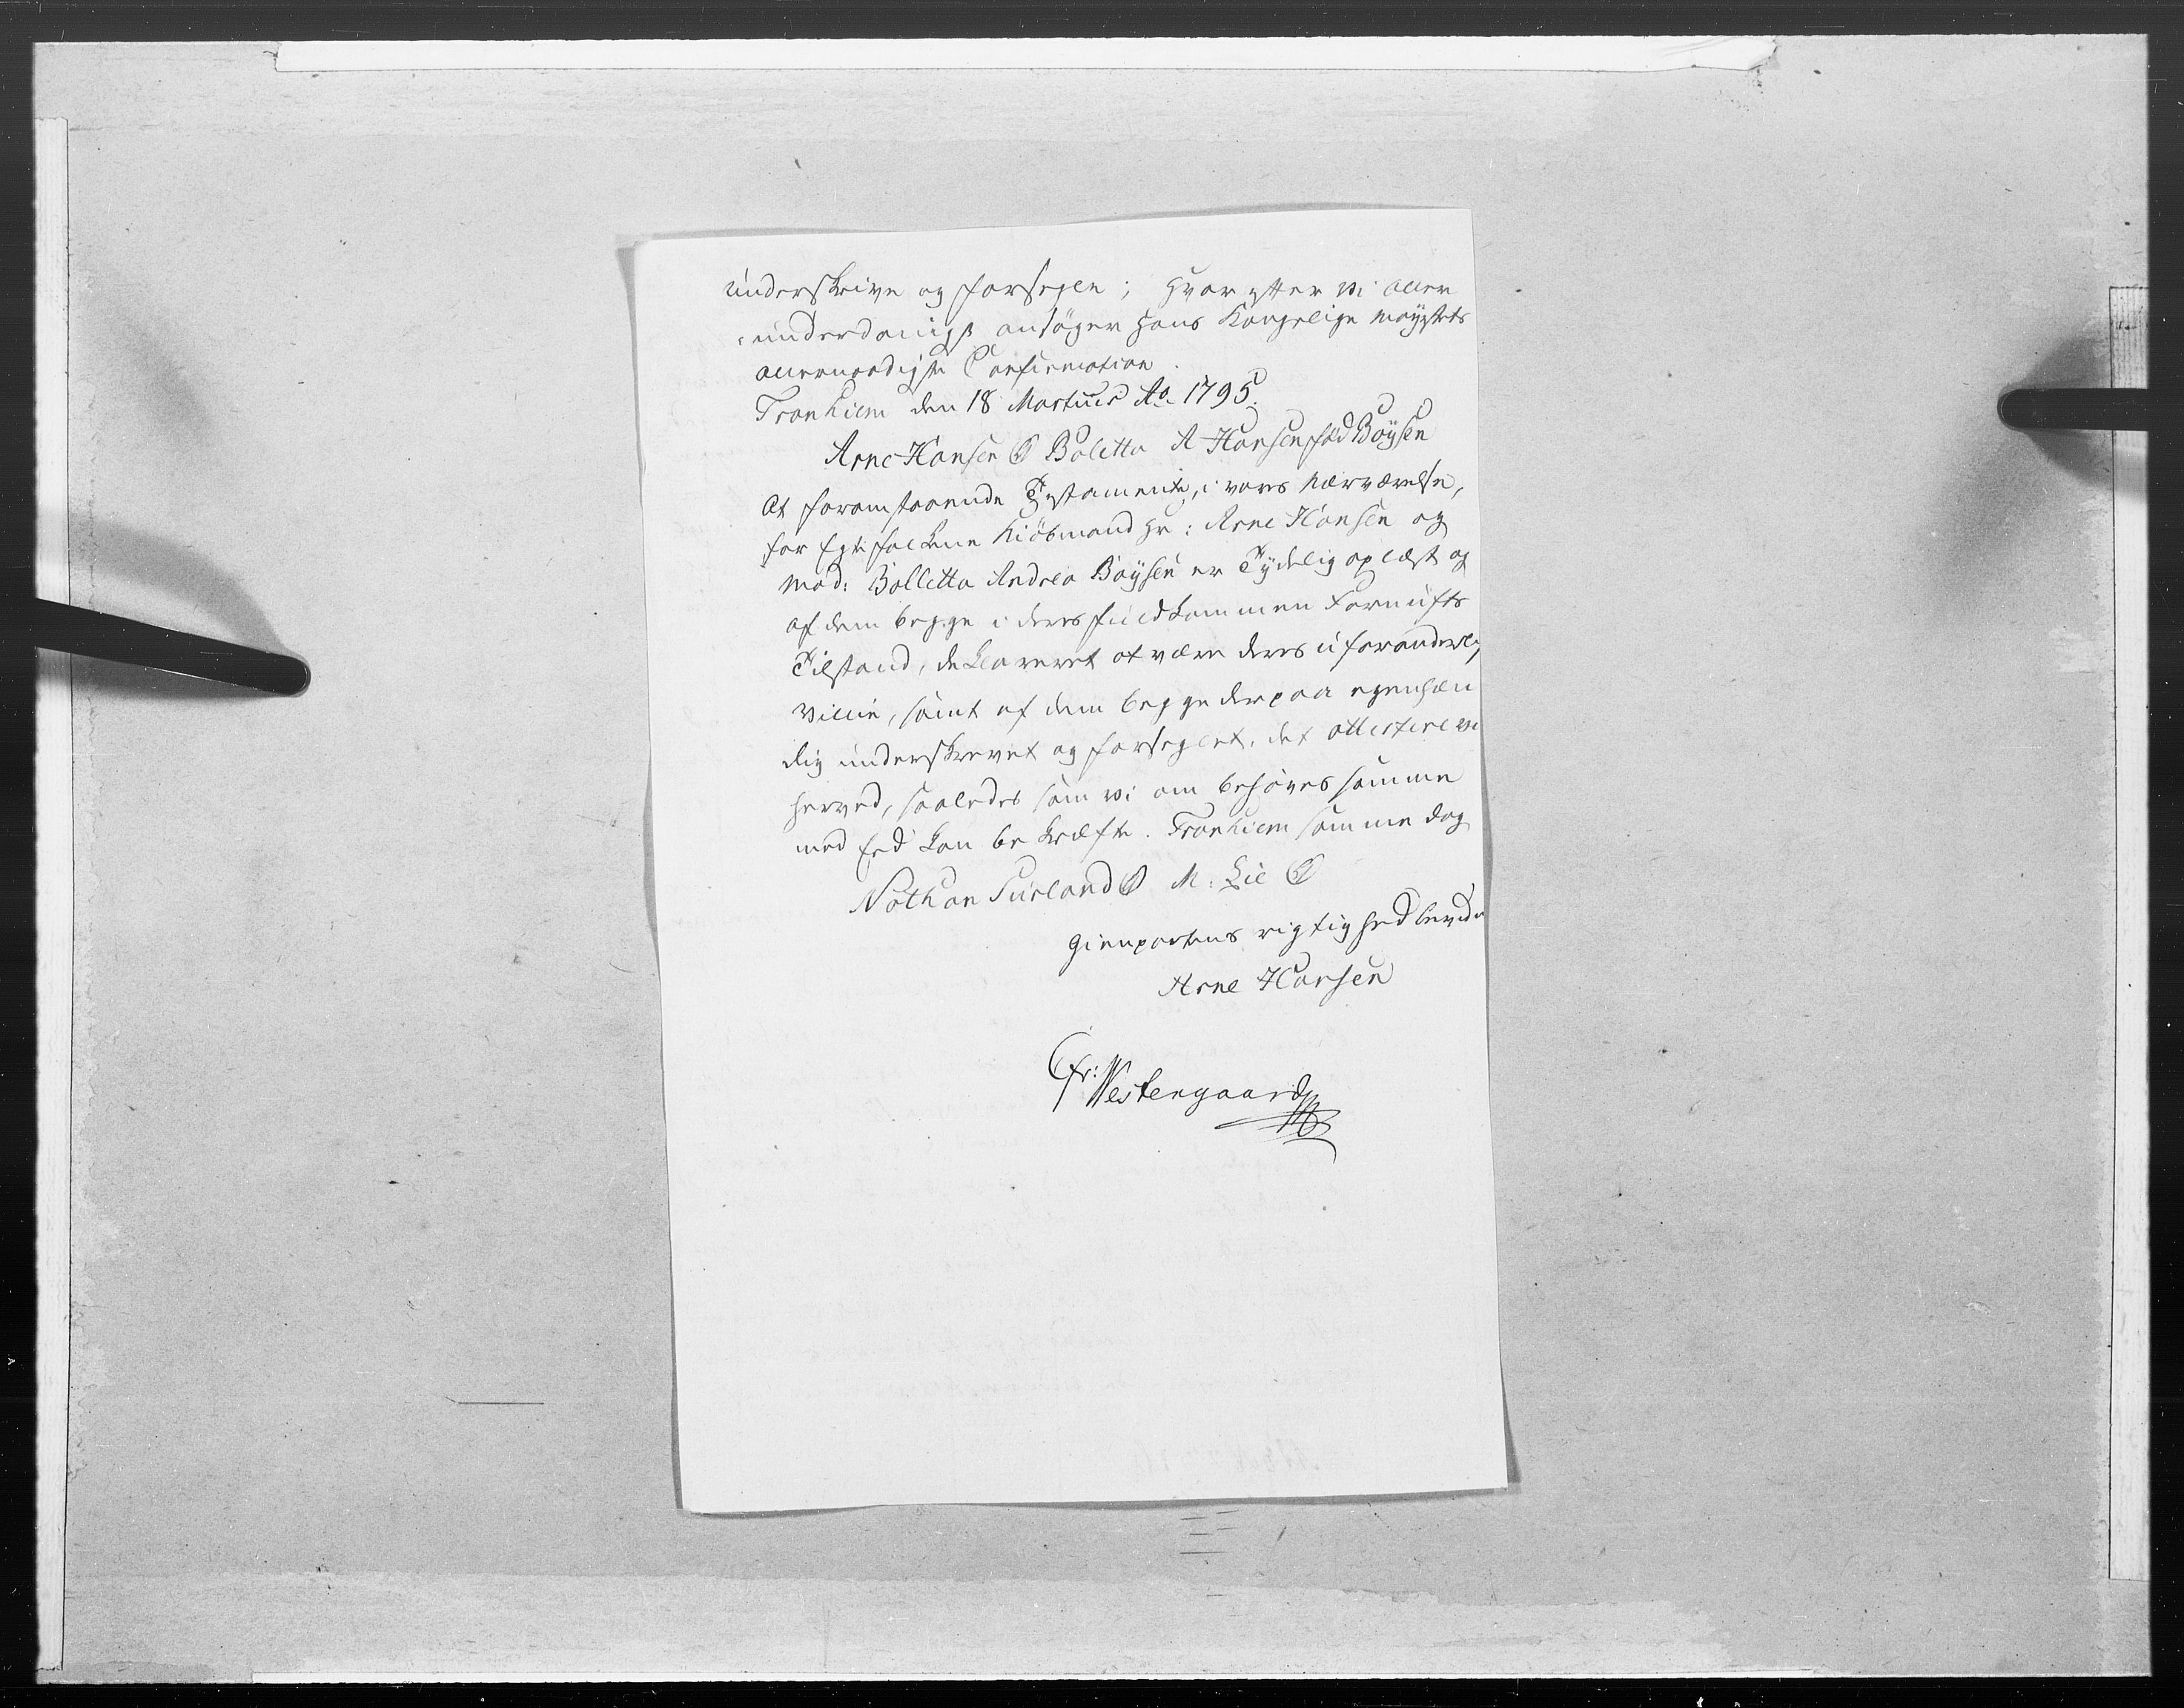 underskrive og forsegle; Hvor efter vi aller
-underdanigst ansøger Hans Kongelige Mayestets
allernaadigste Confirmation.
Tronhiem den 18 Martius Ao. 1795.
Arne Hansen Boletta A Hansen fød Boysen
At foranstaaende Testamente, i vores nærværelse,
for Egtefolkene Kiöbmand Hr: Arne Hansen og
Mad: Bolletta Andrea Boysen er Tydelig oplæst og
af dem begge i deres fuldkommen Fornufts
Tilstand, deklareret at være deres uforanderlig
Villie, samt af dem begge derpaa egenhæn
dig underskrevet og forseglet, det attestere vi
herved, saaledes som vi om behøves samme
med Eed kan bekræfte. Tronhiem samme dag
Nathan Surland M: Lie
Gienpartens rigtighed bevidner
Arne Hansen
Cfr:
Westengaard